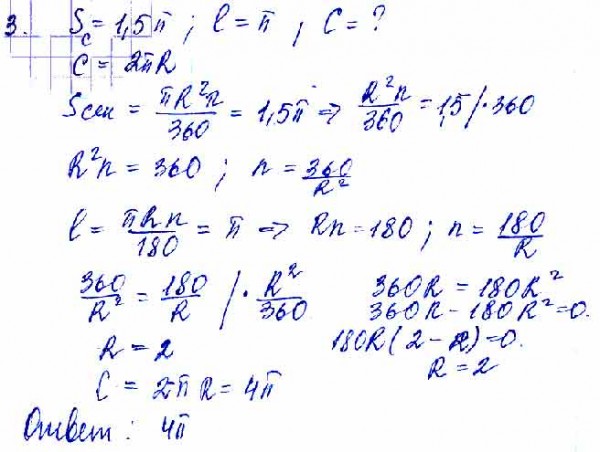 3. S_c = 1,5π ; l = π , C = ?
C = 2πR
Sсек = πR²n/360 = 1,5π => R²n/360 = 1,5 /·360
R²n = 360 ; n = 360/R²
l = πRn/180 = π => Rn = 180 ; n = 180/R
360/R² = 180/R /· R²/360
360R = 180R²
360R - 180R² = 0.
R = 2
180R(2 - R) = 0.
R = 2
C = 2πR = 4π
Ответ: 4π